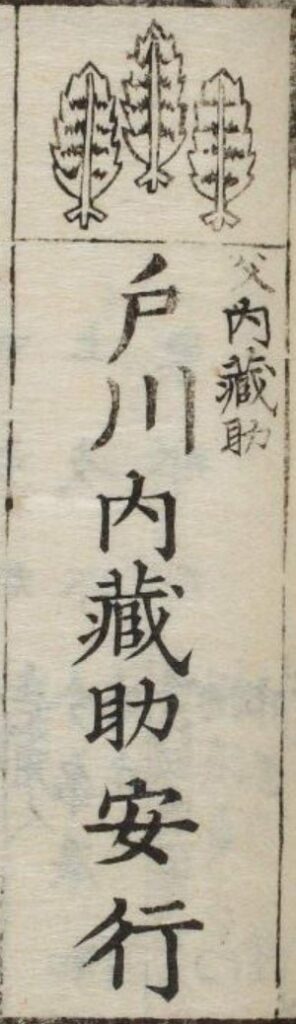 父内藏助
戶川内藏助安行